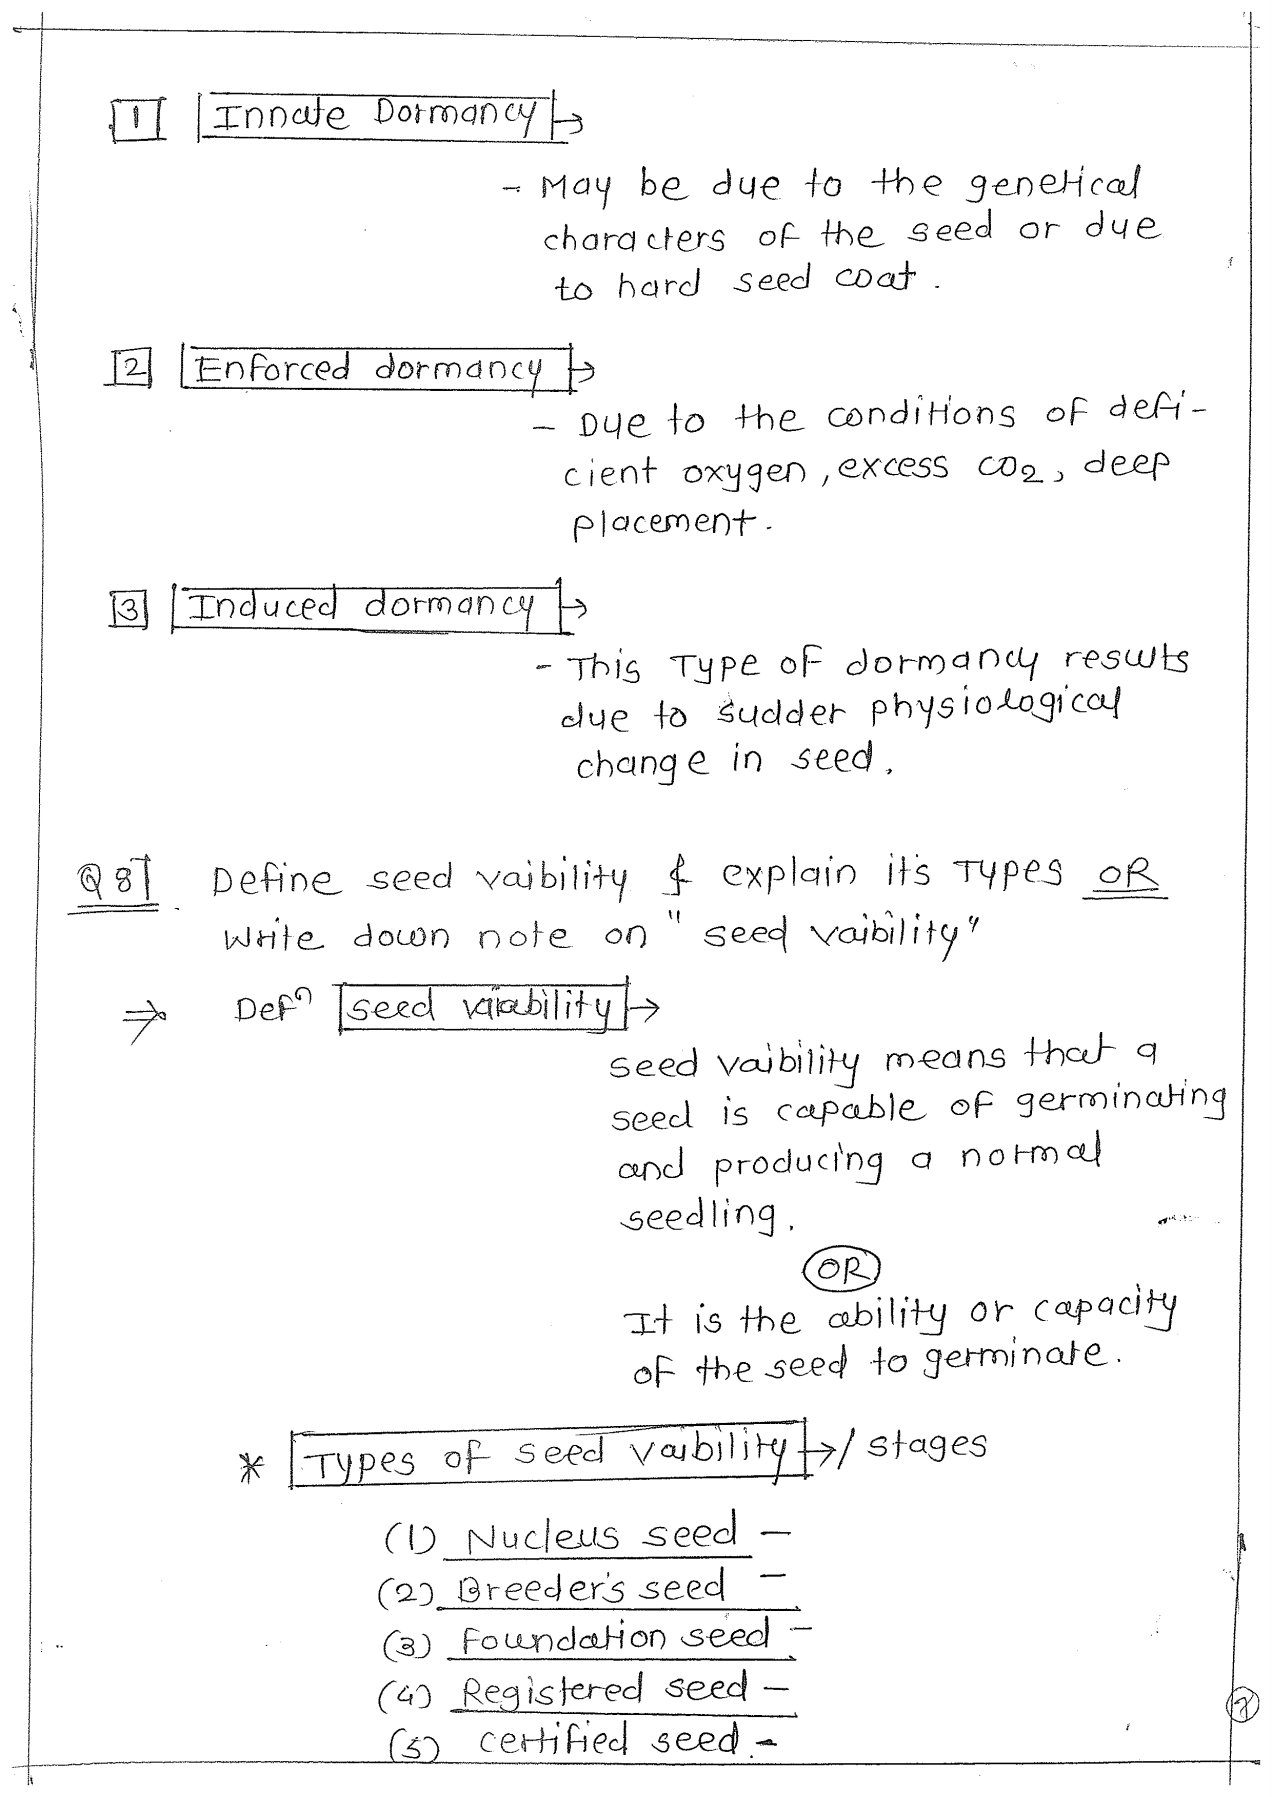 1 Innate Dormancy →
- May be due to the genetical
characters of the seed or due
to hard seed coat.
2 Enforced dormancy →
- Due to the conditions of defi-
cient oxygen, excess CO2, deep
placement.
3 Induced dormancy →
- This Type of dormancy results
due to sudder physiological
change in seed.
Q 8] Define seed vaibility & explain it's Types OR
Write down note on "seed vaibility"
⇒ Defn seed viability →
seed vaibility means that a
seed is capable of germinating
and producing a normal
seedling.
OR
It is the ability or capacity
of the seed to germinate.
* Types of seed vaibility → / stages
(1) Nucleus seed –
(2) Breeder's seed –
(3) Foundation seed –
(4) Registered seed –
(5) certified seed –